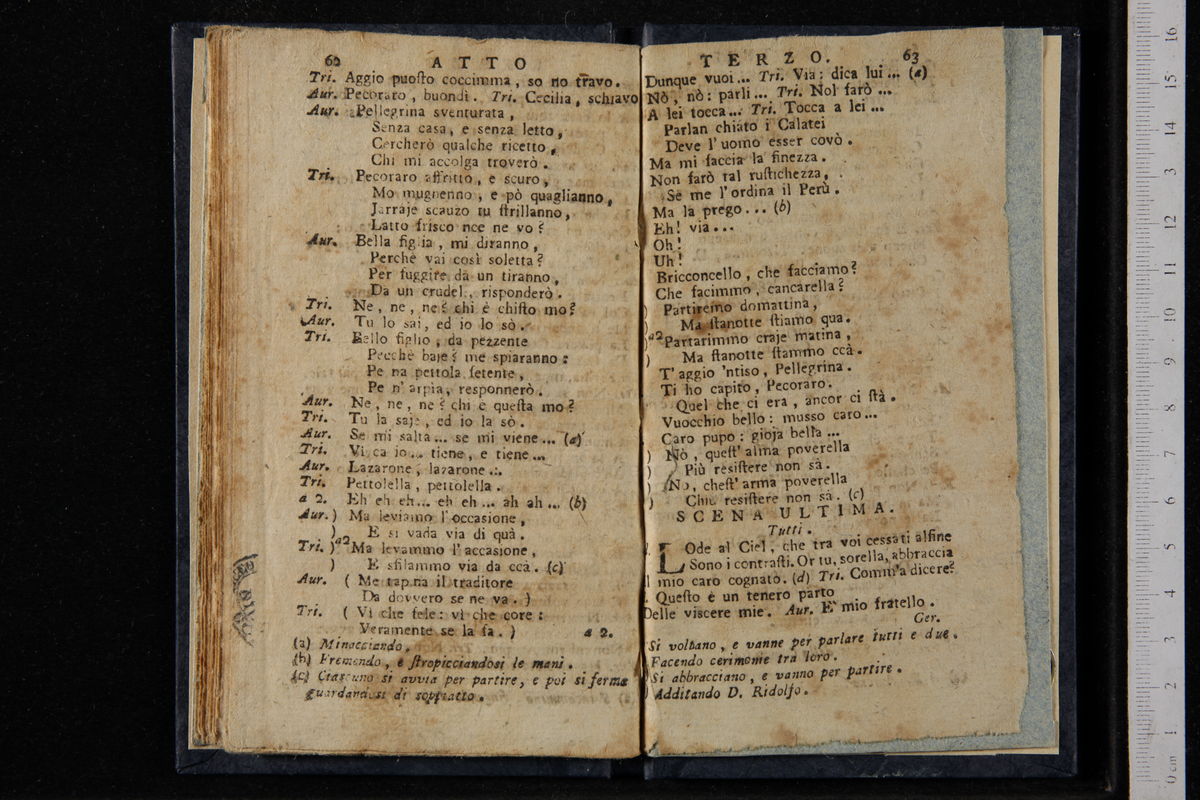 62 ATTO
Tri. Aggio puoſto coccimma, so no travo.
Aur. Pecoraro, buondì. Tri. Cecilia, schiavo
Aur. Pellegrina sventurata,
Senza casa, e senza letto,
Cercherò qualche ricetto,
Chi mi accolga troverò.
Tri. Pecoraro affritto, e scuro,
Mo mugnenno, e pò quaglianno,
Jarraje scauzo tu ſtrillanno,
Latto frisco nce ne vo?
Aur. Bella figlia, mi diranno,
Perchè vai così soletta?
Per fuggire da un tiranno,
Da un crudel, risponderò.
Tri. Ne, ne, ne? chi è chiſto mo?
Aur. Tu lo sai, ed io lo sò.
Tri. Bello figlio, da pezzente
Pecchè baje? me spiaranno:
Pe na pettola fetente,
Pe n' arpia, responnerò.
Aur. Ne, ne, ne? chi è queſta mo?
Tri. Tu la saje, ed io la sò.
Aur. Se mi salta... se mi viene... (a)
Tri. Vi ca io... tiene, e tiene...
Aur. Lazarone, lazarone...
Tri. Pettolella, pettolella.
a 2. Eh eh eh... eh eh... ah ah... (b)
Aur. ) Ma leviamo l'occasione,
) E si vada via di quà.
Tri. ) a2 Ma levammo l'accasione,
) E sfilammo via da ccà. (c)
Aur. ( Me tapina il traditore
Da dovvero se ne va. )
Tri. ( Vi che fele: vi che core:
Veramente se la fa. ) a 2.
(a) Minacciando.
(b) Fremendo, e ſtropicciandosi le mani.
(c) Ciascuno si avvia per partire, e poi si ferma
guardandosi di soppiatto.
TERZO. 63
Dunque vuoi... Tri. Via: dica lui... (a)
Nò, nò: parli... Tri. Nol farò...
A lei tocca... Tri. Tocca a lei...
Parlan chiato i Calatei
Deve l'uomo esser covò.
Ma mi faccia la finezza.
Non farò tal ruſtichezza,
Se me l'ordina il Perù.
Ma la prego... (b)
Eh! via...
Oh!
Uh!
Bricconcello, che facciamo?
Che facimmo, cancarella?
) Partiremo domattina,
) Ma ſtanotte ſtiamo qua.
) a2 Partarimmo craje matina,
) Ma ſtanotte ſtammo ccà.
T' aggio 'ntiso, Pellegrina.
Ti ho capito, Pecoraro.
Quel che ci era, ancor ci ſtà.
Vuocchio bello: musso caro...
Caro pupo: gioja bella...
) Nò, queſt' alma poverella
) Più resiſtere non sà.
) No, cheſt' arma poverella
) Chiù resiſtere non sà. (c)
SCENA ULTIMA.
Tutti.
LOde al Ciel, che tra voi cessati alfine
Sono i contraſti. Or tu, sorella, abbraccia
mio caro cognato. (d) Tri. Comm'a dicere?
Queſto è un tenero parto
Delle viscere mie. Aur. E' mio fratello.
Ger.
Si voltano, e vanne per parlare tutti e due.
Facendo cerimonie tra loro.
Si abbracciano, e vanno per partire.
Additando D. Ridolfo.